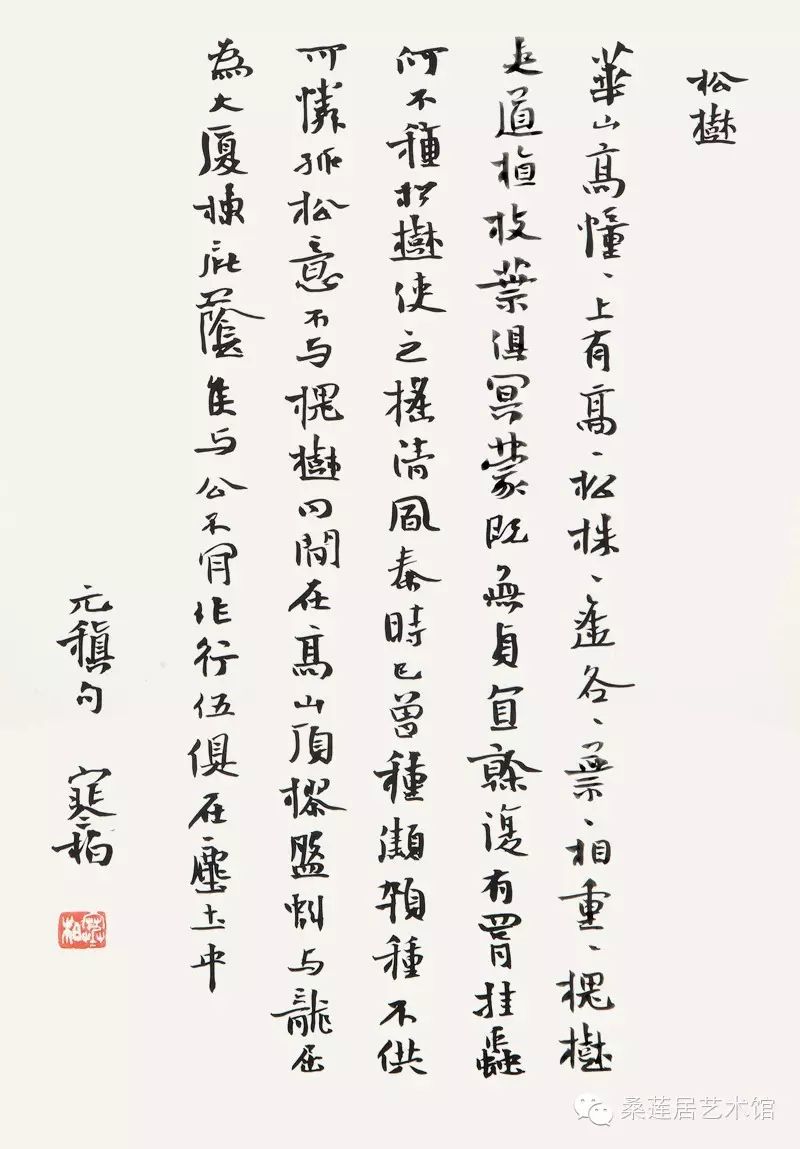 松樹
華山高幢、上有高、松株、遥各、葉、相重、槐樹
夾道植枝葉俱冥蒙既無貞直幹復有罥挂蟲
何不種松樹使之搖清風秦時已曾種顦顇種不供
可憐孤松意不与槐樹同閒在高山頂樛盤虯与龍屈
為大廈棟庇蔭侯与公不肯作行伍俱在塵土中
元稹句 寒柏
寒柏
桑莲居艺术馆